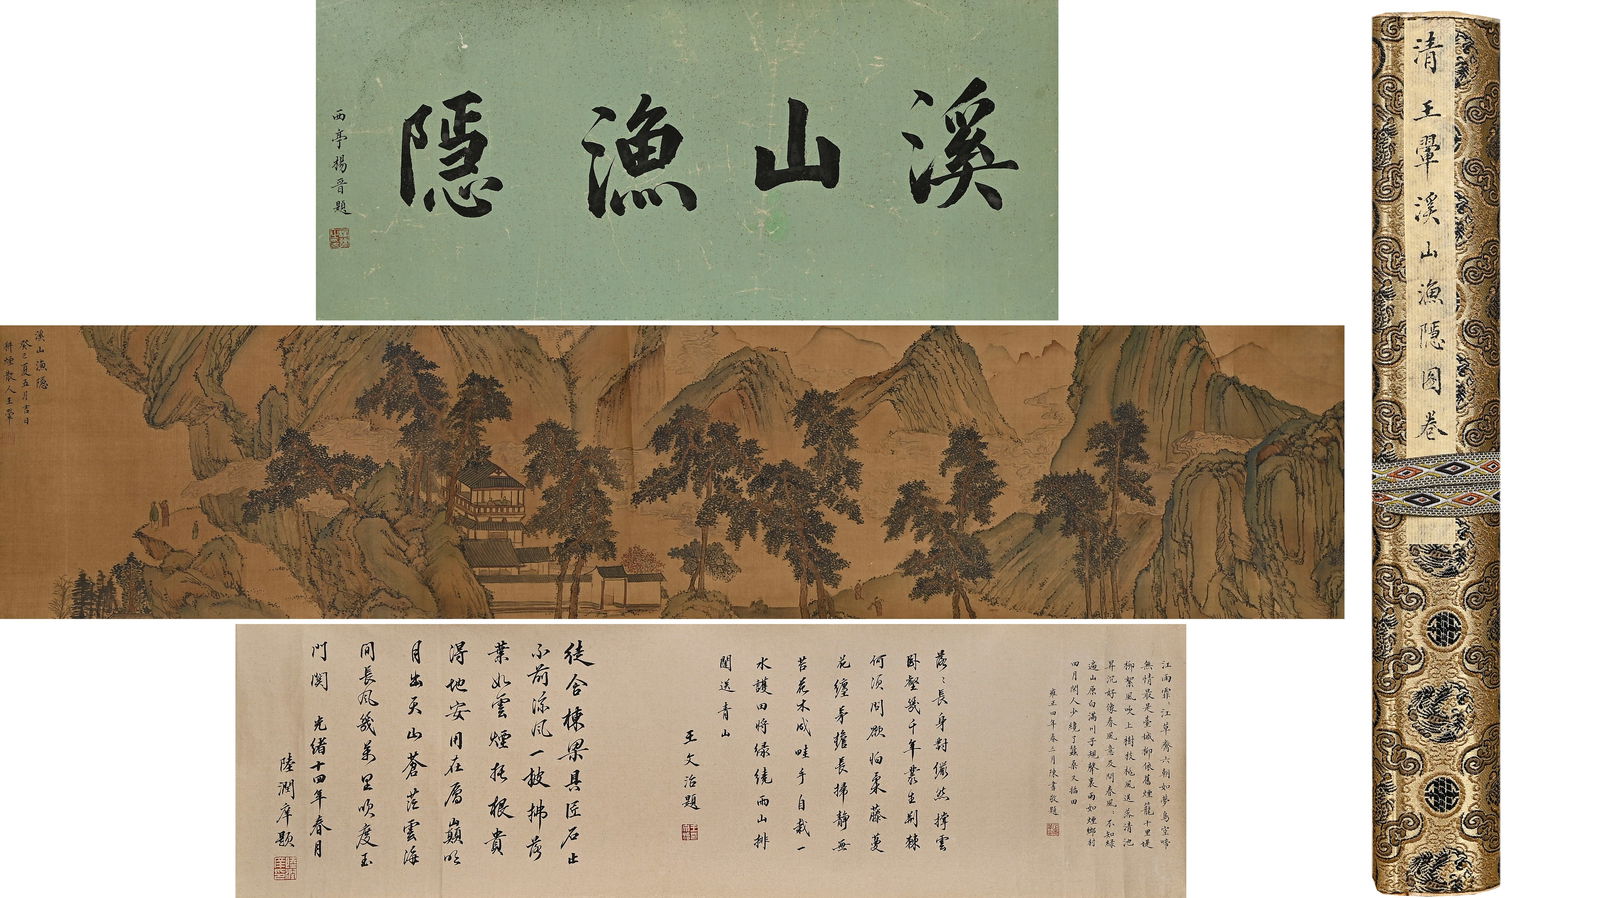 溪山漁隱
西亭楊晉題
清 王翬溪山漁隱图卷
溪山漁隱
癸巳夏五月吉日
耕煙散人王翬
江雨霏霏江草齊六朝如夢鳥空啼
無情最是臺城柳依舊煙籠十里堤
柳絮風吹上樹枝桃風送落清池
昇沉好像春風意及問春風風不知綠
遍山原白滿川子規聲裏雨如煙鄉村
四月閑人少纔了蠶桑又插田
雍正四年春三月陳書敬題
落落長身對儼然撐雲
臥壑幾千年叢生荆棘
何須問欲怕柔藤蔓
花纏茅檐長掃靜無
苔花木成畦手自栽一
水護田將綠繞兩山排
闥送青山
王文治題
徒合棟梁具匠石止
不前涼風一披拂落
葉如雲煙托根貴
得地安用在厲巔明
月出天山蒼茫雲海
間長風幾萬里吹度玉
門関 光緒十四年春月
陸潤庠題